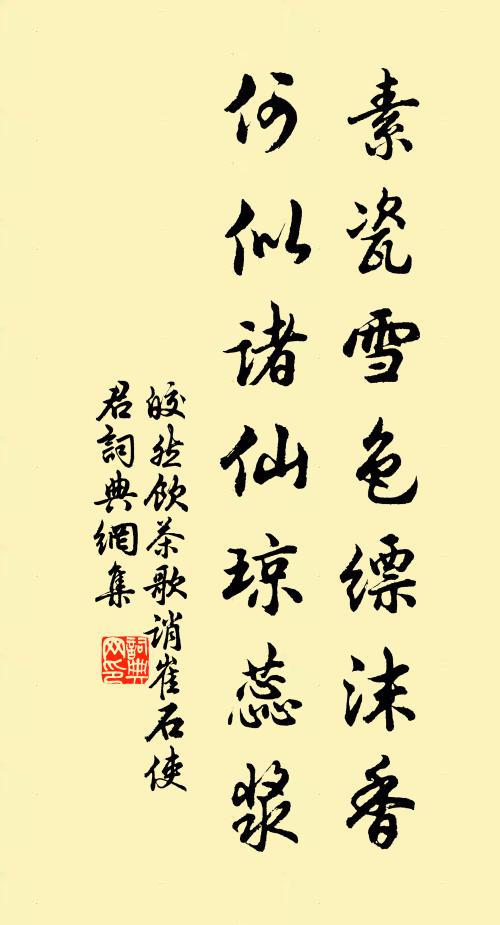 素瓷雪色缥沫香
何似诸仙琼蕊浆
皎然飲茶歌誚崔石使
君詞典網集
詞典网印